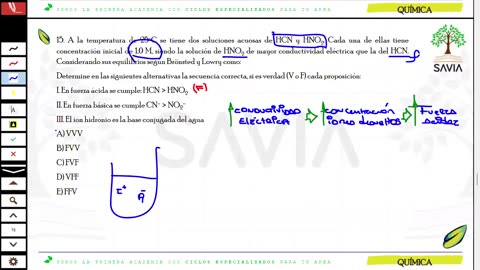 TODOS LA PRIMERA ACADEMIA CON CICLOS ESPECIALIZADOS PARA TU ÁREA
QUÍMICA
15. A la temperatura de 25°C se tiene dos soluciones acuosas de HCN y HNO₂. Cada una de ellas tiene
concentración inicial de 1,0 M, siendo la solución de HNO₂ de mayor conductividad eléctrica que la del HCN.
Considerando sus equilibrios según Brönsted y Lowry como:
Determine en las siguientes alternativas la secuencia correcta, si es verdad (V o F) cada proposición:
I. En fuerza ácida se cumple: HCN > HNO₂ (F)
II. En fuerza básica se cumple CN⁻ > NO₂⁻
III. El ion hidronio es la base conjugada del agua
A) VVV
B) FVV
C) FVF
D) VFF
E) FFV
SAVIA
CONDUCTIVIDAD
ELÉCTRICA
CONCENTRACIÓN
IONES DISUELTOS
FUERZA
SAVIA
QUÍMICA